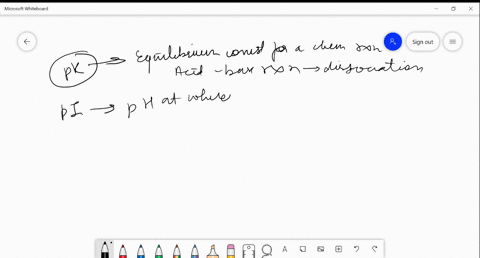 Microsoft Whiteboard
Sign out
pK → Equilibrium const for a chem rxn
Acid-base rxn → dissociation
pI → pH at where
A